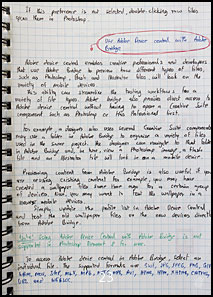 If this preference is not selected double-clicking raw files
opens them in Photoshop
Use Adobe Device Central with Adobe
Bridge
Adobe Device Central enables creative professionals and developers
that use Adobe Bridge to preview how different types of files,
such as Photoshop, Flash and Illustrator files will look on the
variety of mobile devices.
This ability can streamline the testing workflows for a
variety of file types. Adobe Bridge also provides direct access to
Adobe Device Central without having to open a Creative Suite
component such as Photoshop or Flash Professional first.
For example a designer who uses several Creative Suite components
may use a folder in Adobe Bridge to organise the
used in the same project. The designer can navigate to that folder
in Adobe Bridge and, in how a Photoshop image a Flash
file and an Illustrator file will look on a mobile device.
Previewing content from Adobe Bridge is also useful if you
are existing content. For example, you may have
created a wallpaper files some time ago for a certain group
of devices. Now, you may want to the wallpaper on the
mobile devices.
Simply update the profile list in Adobe Device Central
and test the old wallpaper files on the new devices directly
from Adobe Bridge.
Using Adobe Device Central with Adobe Bridge is not
supported if
To access Adobe Device Central from Adobe Bridge, select an
individual file. The supported formats are: SWF, JPG, JPEG, PNG, GIF,
WBM, MOV, 3GP, M4V, MP4, MPG, MPEG, AVI, HTML, HTM, XHTML, CHTML,
URL and WEBLOC.